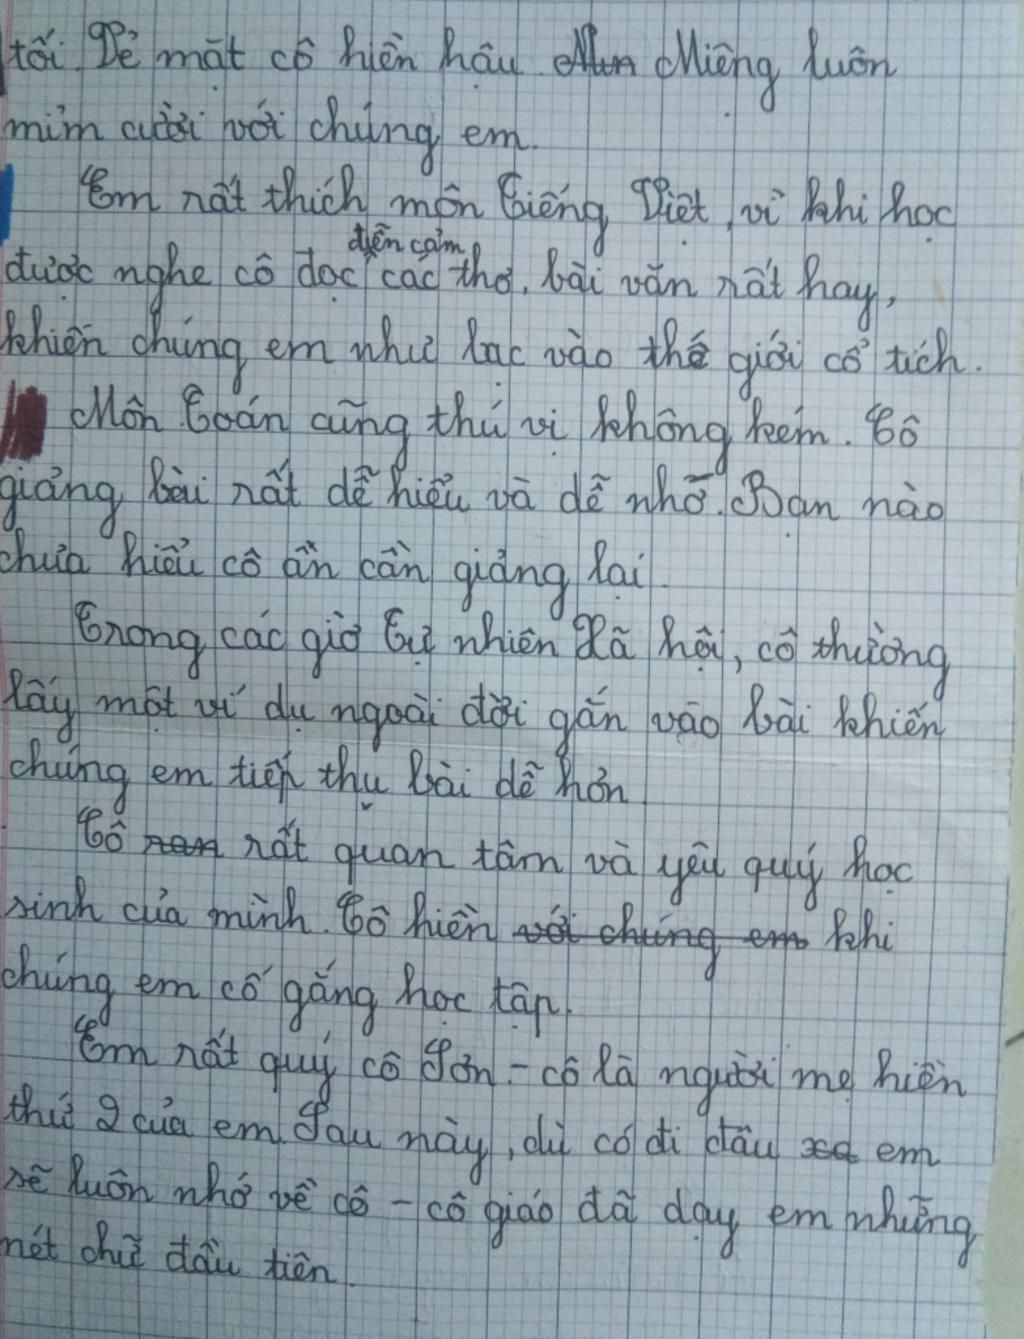 tối. Vẻ mặt cô hiền hậu. Miệng luôn
mỉm cười với chúng em.
Em rất thích môn Tiếng Việt, vì khi học
diễn cảm
được nghe cô đọc các thơ, bài văn rất hay,
khiến chúng em như lạc vào thế giới cổ tích.
Môn Toán cũng thú vị không kém. Cô
giảng bài rất dễ hiểu và dễ nhớ. Bạn nào
chưa hiểu cô ân cần giảng lại.
Trong các giờ Tự nhiên Xã hội, cô thường
lấy một ví dụ ngoài đời gắn vào bài khiến
chúng em tiếp thụ bài dễ hơn.
Cô rất quan tâm và yêu quý học
sinh của mình. Cô hiền với chúng em khi
chúng em cố gắng học tập.
Em rất quý cô Sơn - cô là người mẹ hiền
thứ 2 của em. Sau này, dù có đi đâu xa em
sẽ luôn nhớ về cô - cô giáo đã dạy em những
nét chữ đầu tiên.